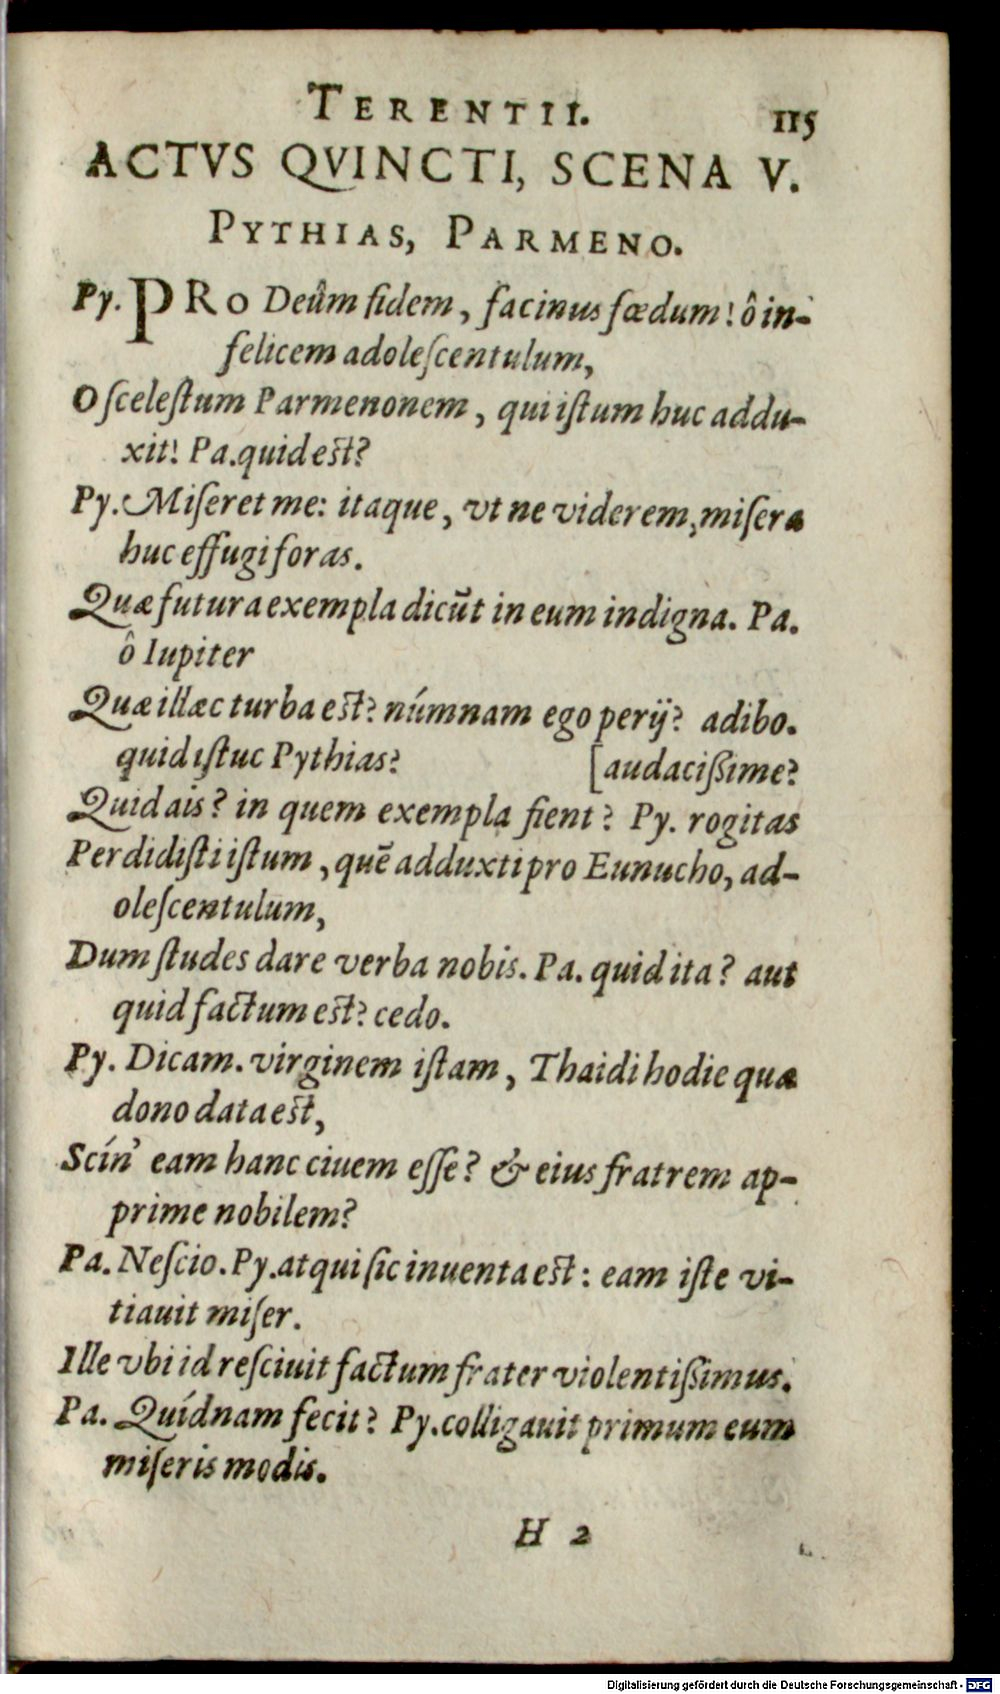 TERENTII. 115
ACTVS QVINCTI, SCENA V.
PYTHIAS, PARMENO.
Py. PRO Deûm fidem, facinus fœdum! ô in-
felicem adoleſcentulum,
O ſceleſtum Parmenonem, qui iſtum huc addu-
xit! Pa. quid eſt?
Py. Miſeret me: itaque, vt ne viderem, miſera
huc effugi foras.
Quæ futura exempla dicūt in eum indigna. Pa.
ô Iupiter
Quæ illæc turba eſt? númnam ego perij? adibo.
quid iſtuc Pythias? [audacißime?
Quid ais? in quem exempla fient? Py. rogitas
Perdidiſti iſtum, quē adduxti pro Eunucho, ad-
oleſcentulum,
Dum ſtudes dare verba nobis. Pa. quid ita? aut
quid factum eſt? cedo.
Py. Dicam. virginem iſtam, Thaidi hodie quæ
dono data eſt,
Scín' eam hanc ciuem eſſe? & eius fratrem ap-
prime nobilem?
Pa. Neſcio. Py. atqui ſic inuenta eſt: eam iſte vi-
tiauit miſer.
Ille vbi id reſciuit factum frater violentißimus.
Pa. Quídnam fecit? Py. colligauit primum eum
miſeris modis.
H 2
Digitalisierung gefördert durch die Deutsche Forschungsgemeinschaft - DFG